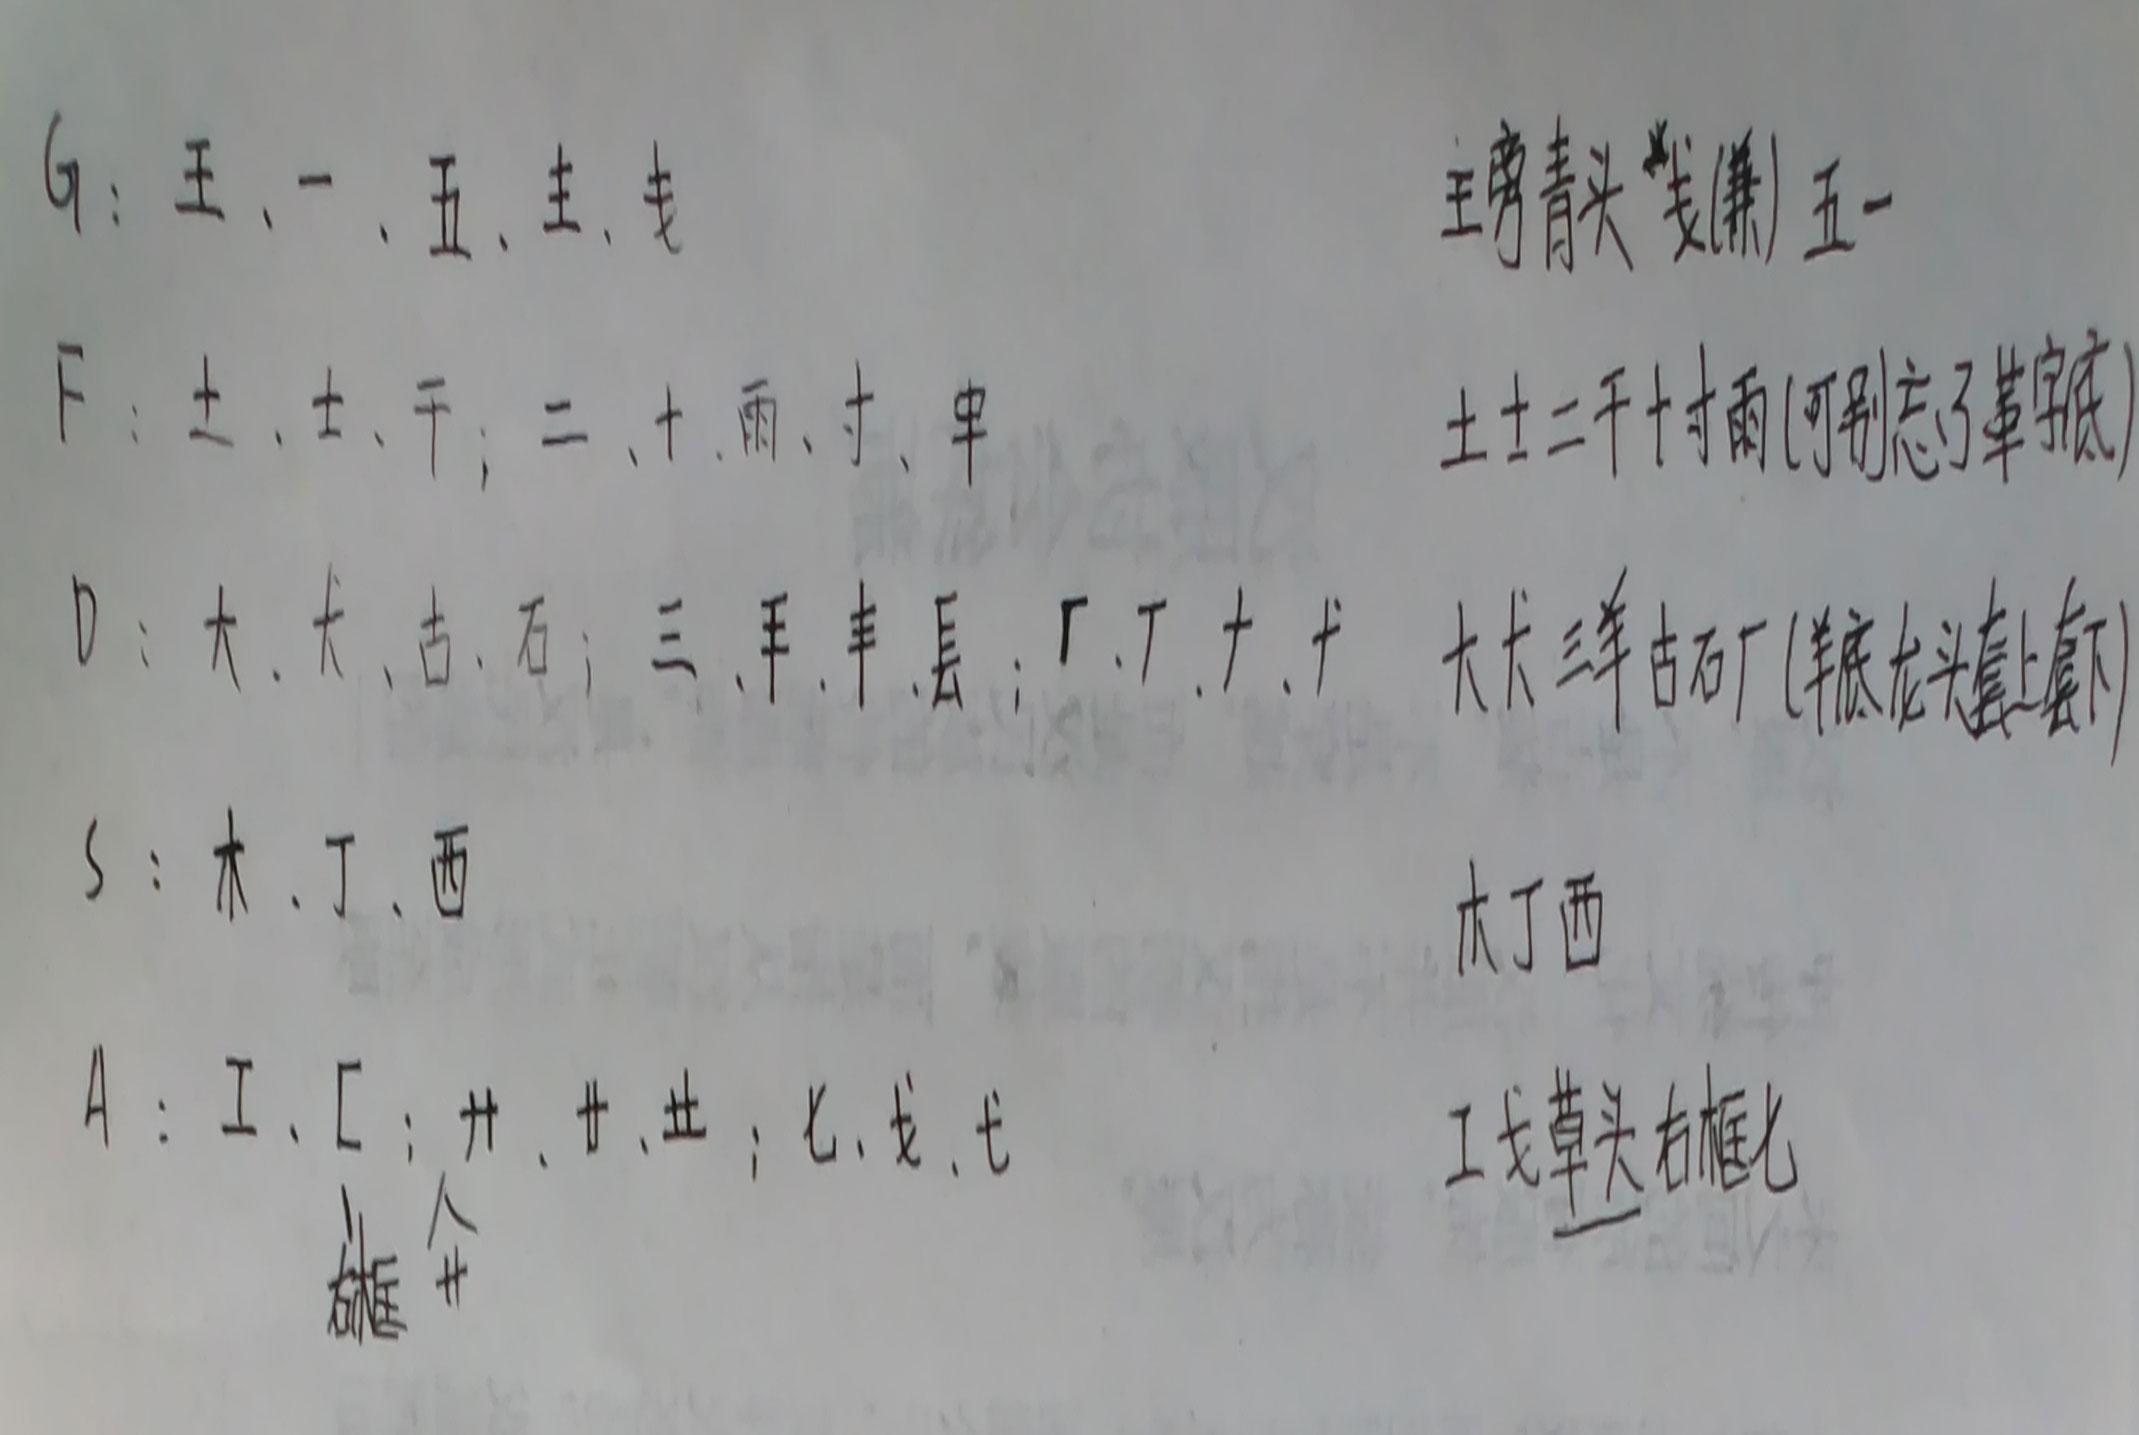 G：王、一、五、龶、戋 王旁青头戋(兼)五一
F：土、士、干；二、十、雨、寸、 土士二干十寸雨(可别忘了革字底)
D：大、犬、古、石；三、𦍌、丰、镸；厂、丆、𠂇、 大犬三羊古石厂(羊底龙头套上套下)
S：木、丁、西 木丁西
A：工、匚；廾、廿、龷；匕、戈、七 工戈草头右框七
右框
廾